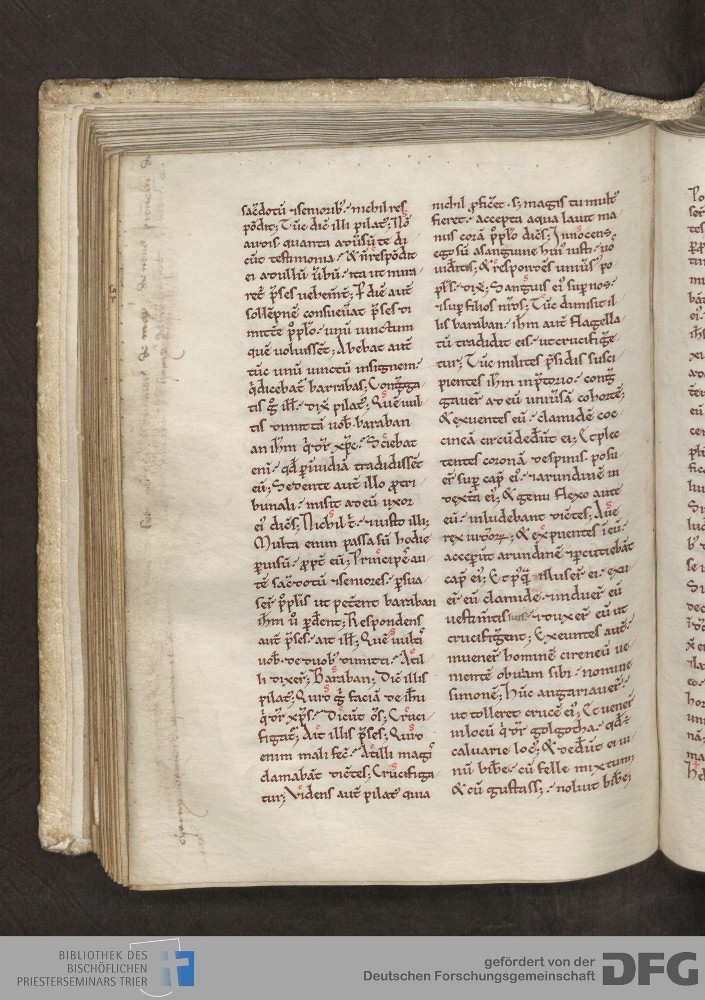 sac̄dotū ⁊seniorib; nichil res
pōdit; Tūc dic̄ illi pilat᷒; Nō
audis quanta aduersū te di
cūt testimonia; & n̄ respōdit
ei adullū ūbū; ita ut mira
ret᷑ p̄ses uehem̄t̄; P̄ diē aut̄
sollēpnē consueuat p̄ses di
mitt̄e pp̄lo; unū uinctum
quē uoluissēt; Abebat aut̄
tūc unū uinctū insignem;
q̄ dicebat᷑ barrabas; Congga
tis g̊ ill̄; dix̄ pilat᷒; Quē uul
tis dimittā uob̄; baraban
an ih̄m q̄ dr̄ xp̄c; Sciebat
eni; qd̄ p inuidiā tradidissēt
eū; Sedente aut̄ illo p tri
bunali; misit ad eū uxor
ei᷒ dicēs; Nichil t̄; ⁊iusto illi;
Multa enim passa sū hodie
p uisū; ꝓpt̄ eū; Principes au
tē sac̄dotū ⁊seniores; p̄sua
ser̄ pp̄lis ut pet̄ent baraban
ih̄m ū p̄dent; Respondens
aut̄ p̄ses; ait ill̄; Quē uulti᷒
uob̄ de duob᷒ dimitti; Atil
li dixer̄; Baraban; Dic̄ illis
pilat᷒; Quid g̊ faciā de ih̄u
q̄ dr̄ xp̄s; Dicūt om̄s; Cruci
figat᷑; Ait illis p̄ses; Quid
enim mali fec̄; Atilli magi᷒
clamabāt dicētes; Crucifiga
tur; Videns aut̄ pilat᷒ quia
nichil ꝓficēt; s; magis tumult᷒
fieret; accepta aqua lauit ma
nus corā pp̄lo dicēs; Innocens
ego sū asanguine hui᷒ iusti; uo
uid̄itis; & respondēs uniūs᷒ po
pl̄s; dix̄; Sanguis ei᷒ sup nos;
⁊sup filios nr̄os; Tūc dimisit il
lis baraban; ih̄m aut̄ flagella
tū tradidit eis; ut crucifige
tur; Tūc milites p̄sidis susci
pientes ih̄m in p̄torio; cong̃
gauer̄ ad eū uniūsā cohortē;
& exuentes eū; clamidē coc
cineā circūded̄ūt ei; Et plec
tentes coronā despinis; posu
er̄ sup cap᷒ ei᷒; ⁊arundinē in
dextā ei᷒; & genu flexo ante
eū; inludebant dicētes; Aue
rex iudeoꝝ; & expuentes ī eū;
accep̄ūt arundinē ⁊p̄cutiebāt
cap᷒ ei᷒; Et p᷒qm̄ illuser̄ ei; exu
er̄ eū clamide; ⁊induer̄ eū
uestim̄tis suis; ⁊duxer̄ eū ut
crucifigent; Exeuntes aut̄;
inuener̄ hominē cireneū ue
nientē obuiam sibi; nomine
simonē; Hūc angariauer̄
ut tolleret crucē ei᷒; Et uener̄
in locū q̄ dr̄ golgotha; qd̄ t̄
caluarie loc᷒; & ded̄ūt ei ui
nū bib̄e; cū felle mixtum
& cū gustass; noluit bib̄e;
BIBLIOTHEK DES
BISCHÖFLICHEN
PRIESTERSEMINARS TRIER
gefördert von der
Deutschen Forschungsgemeinschaft
DFG